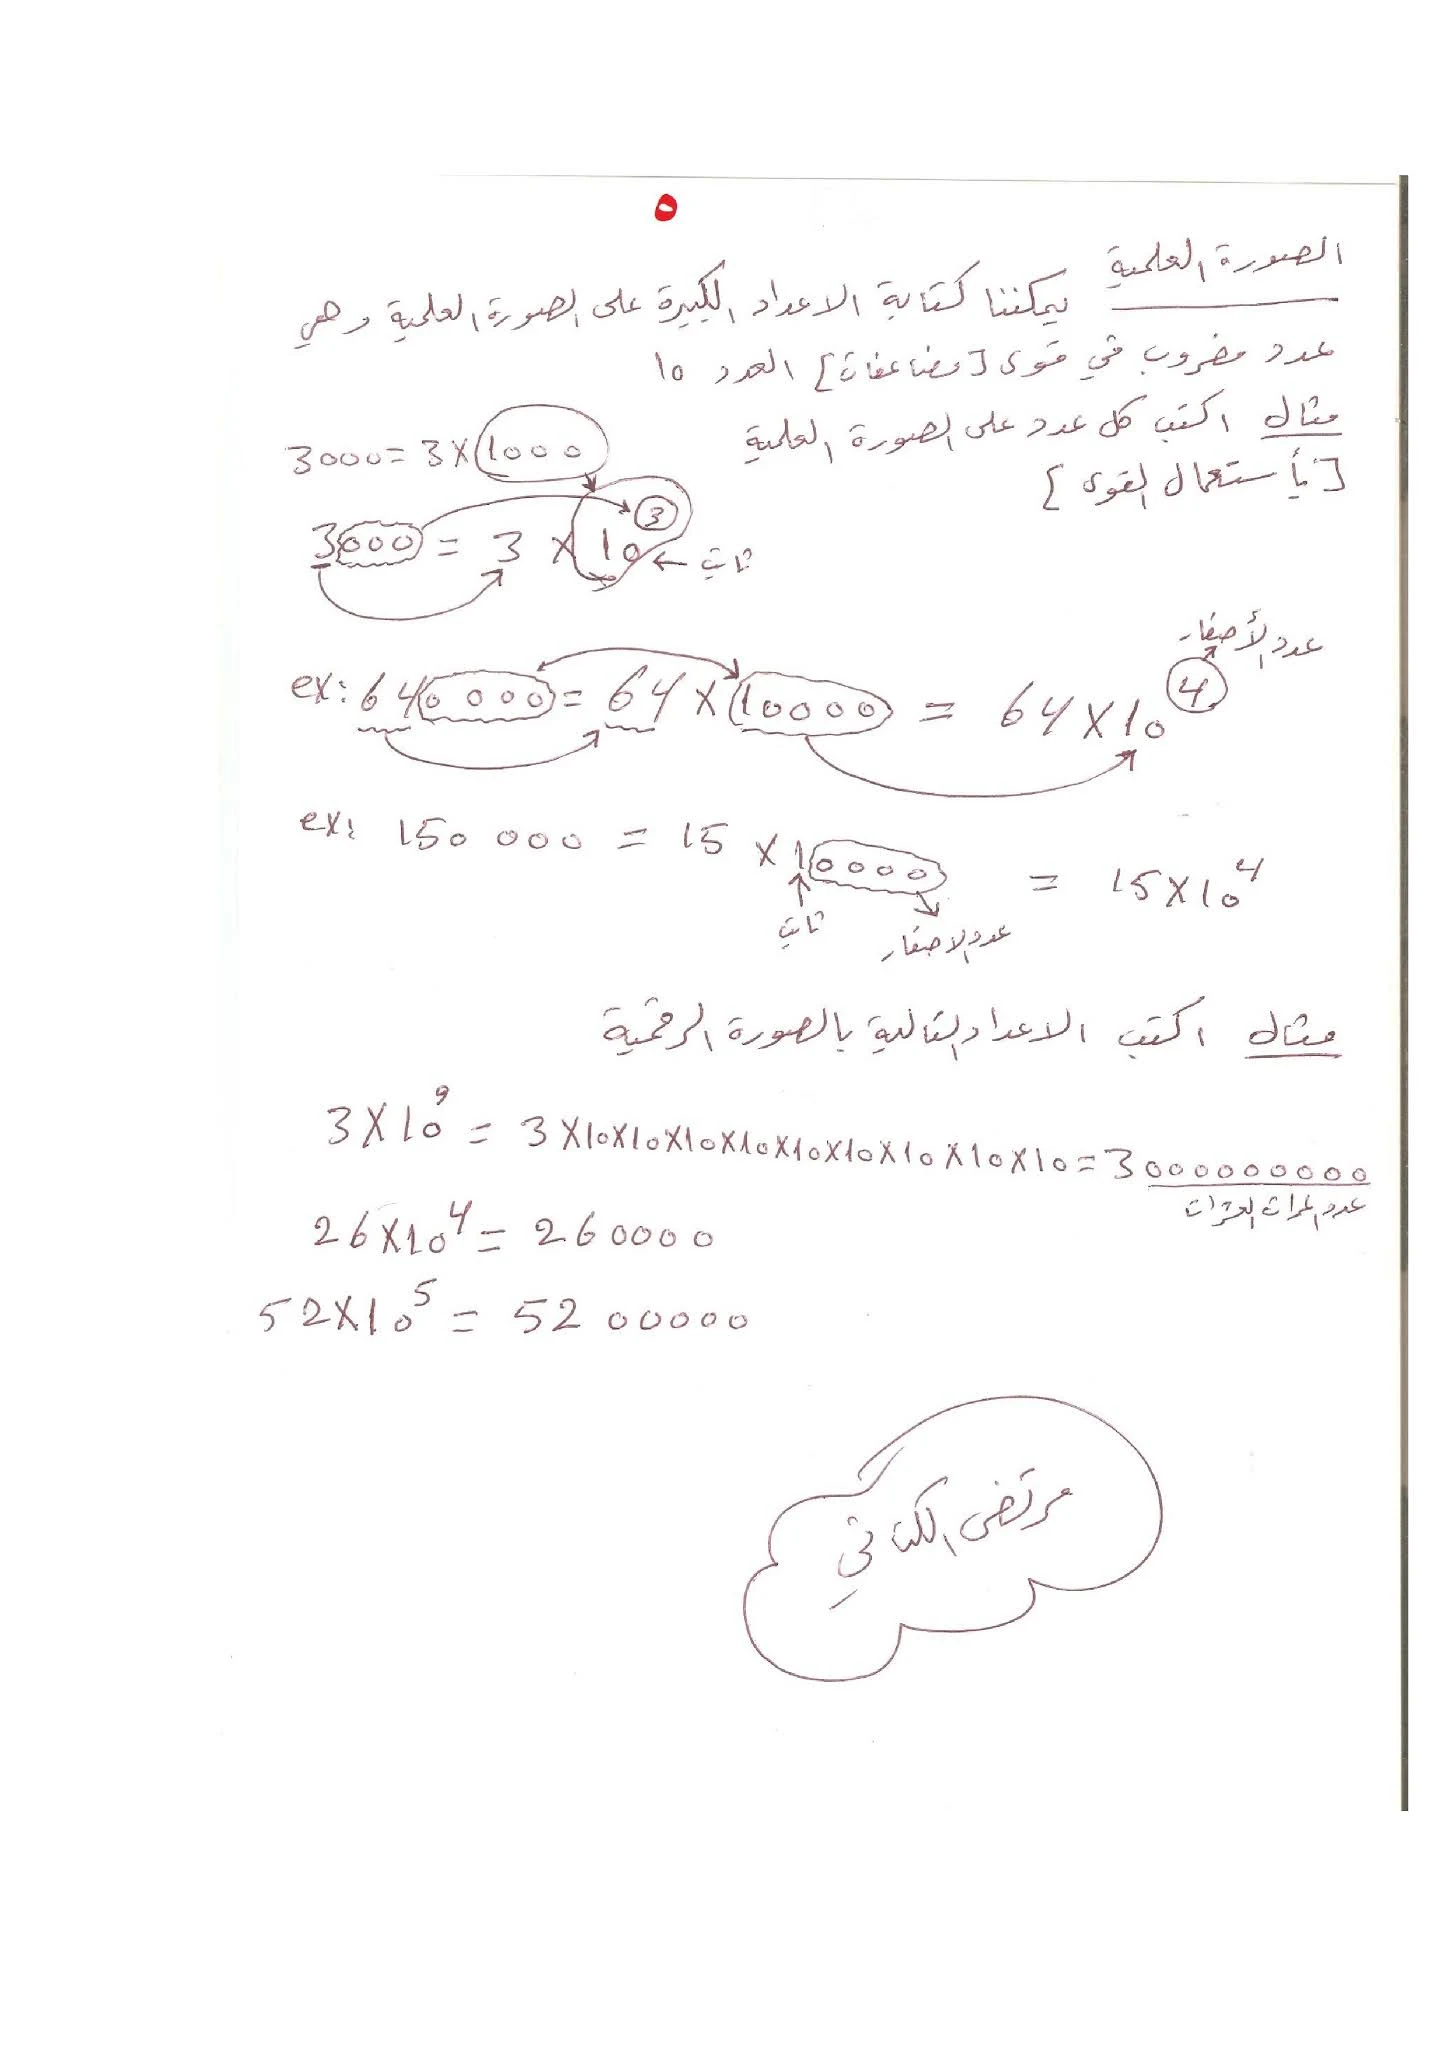 ٥
الصورة العلمية
يمكننا كتابة الاعداد الكبيرة على الصورة العلمية وهي
عدد مضروب في قوى [مضاعفات] العدد ١٥
مثال اكتب كل عدد على الصورة العلمية
[بأستعمال القوى]
3000 = 3 × 1000
3000 = 3 × 10³ ← ثابت
عدد الأصفار
ex: 640000 = 64 × 10000 = 64 × 10⁴
ex: 150 000 = 15 × 10000 = 15 × 10⁴
ثابت عدد الاصفار
مثال اكتب الاعداد التالية بالصورة الرقمية
3 × 10⁹ = 3 × 10 × 10 × 10 × 10 × 10 × 10 × 10 × 10 × 10 = 3000000000
عدد المرات العشرات
26 × 10⁴ = 260000
52 × 10⁵ = 5200000
مرتضى الكناني